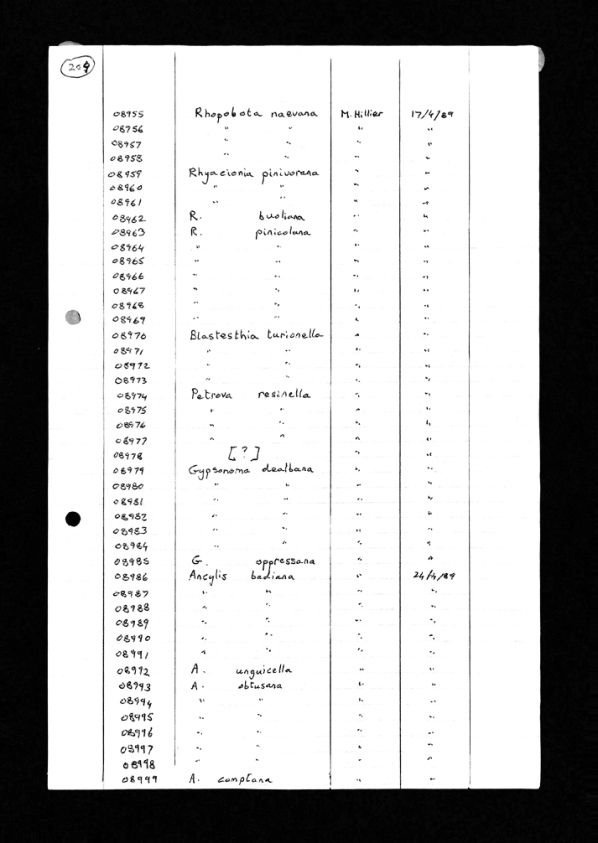 209
08955 Rhopobota naevana M. Hillier 17/4/89
08956 " " " "
08957 " " " "
08958 " " " "
08959 Rhyacionia pinivorana " "
08960 " " " "
08961 " " " "
08962 R. buoliana " "
08963 R. pinicolana " "
08964 " " " "
08965 " " " "
08966 " " " "
08967 " " " "
08968 " " " "
08969 " " " "
08970 Blastesthia turionella " "
08971 " " " "
08972 " " " "
08973 " " " "
08974 Petrova resinella " "
08975 " " " "
08976 " " " "
08977 " " " "
08978 [?] " "
08979 Gypsonoma dealbana " "
08980 " " " "
08981 " " " "
08982 " " " "
08983 " " " "
08984 " " " "
08985 G. oppressana " "
08986 Ancylis badiana " 24/4/89
08987 " " " "
08988 " " " "
08989 " " " "
08990 " " " "
08991 " " " "
08992 A. unguicella " "
08993 A. obtusana " "
08994 " " " "
08995 " " " "
08996 " " " "
08997 " " " "
08998 " " " "
08999 A. comptana " "